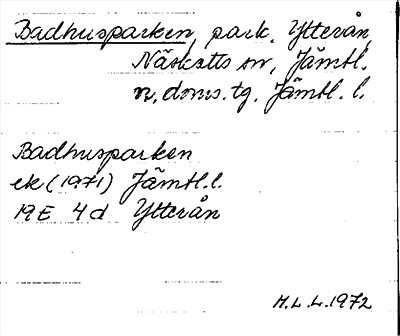 Badhusparken, park, Ytterån,
Näskotts sn, Jämtl.
n. doms. tg. Jämtl. l.
Badhusparken
ek (1971) Jämtl. l.
19E 4d Ytterån
H.L.L. 1972